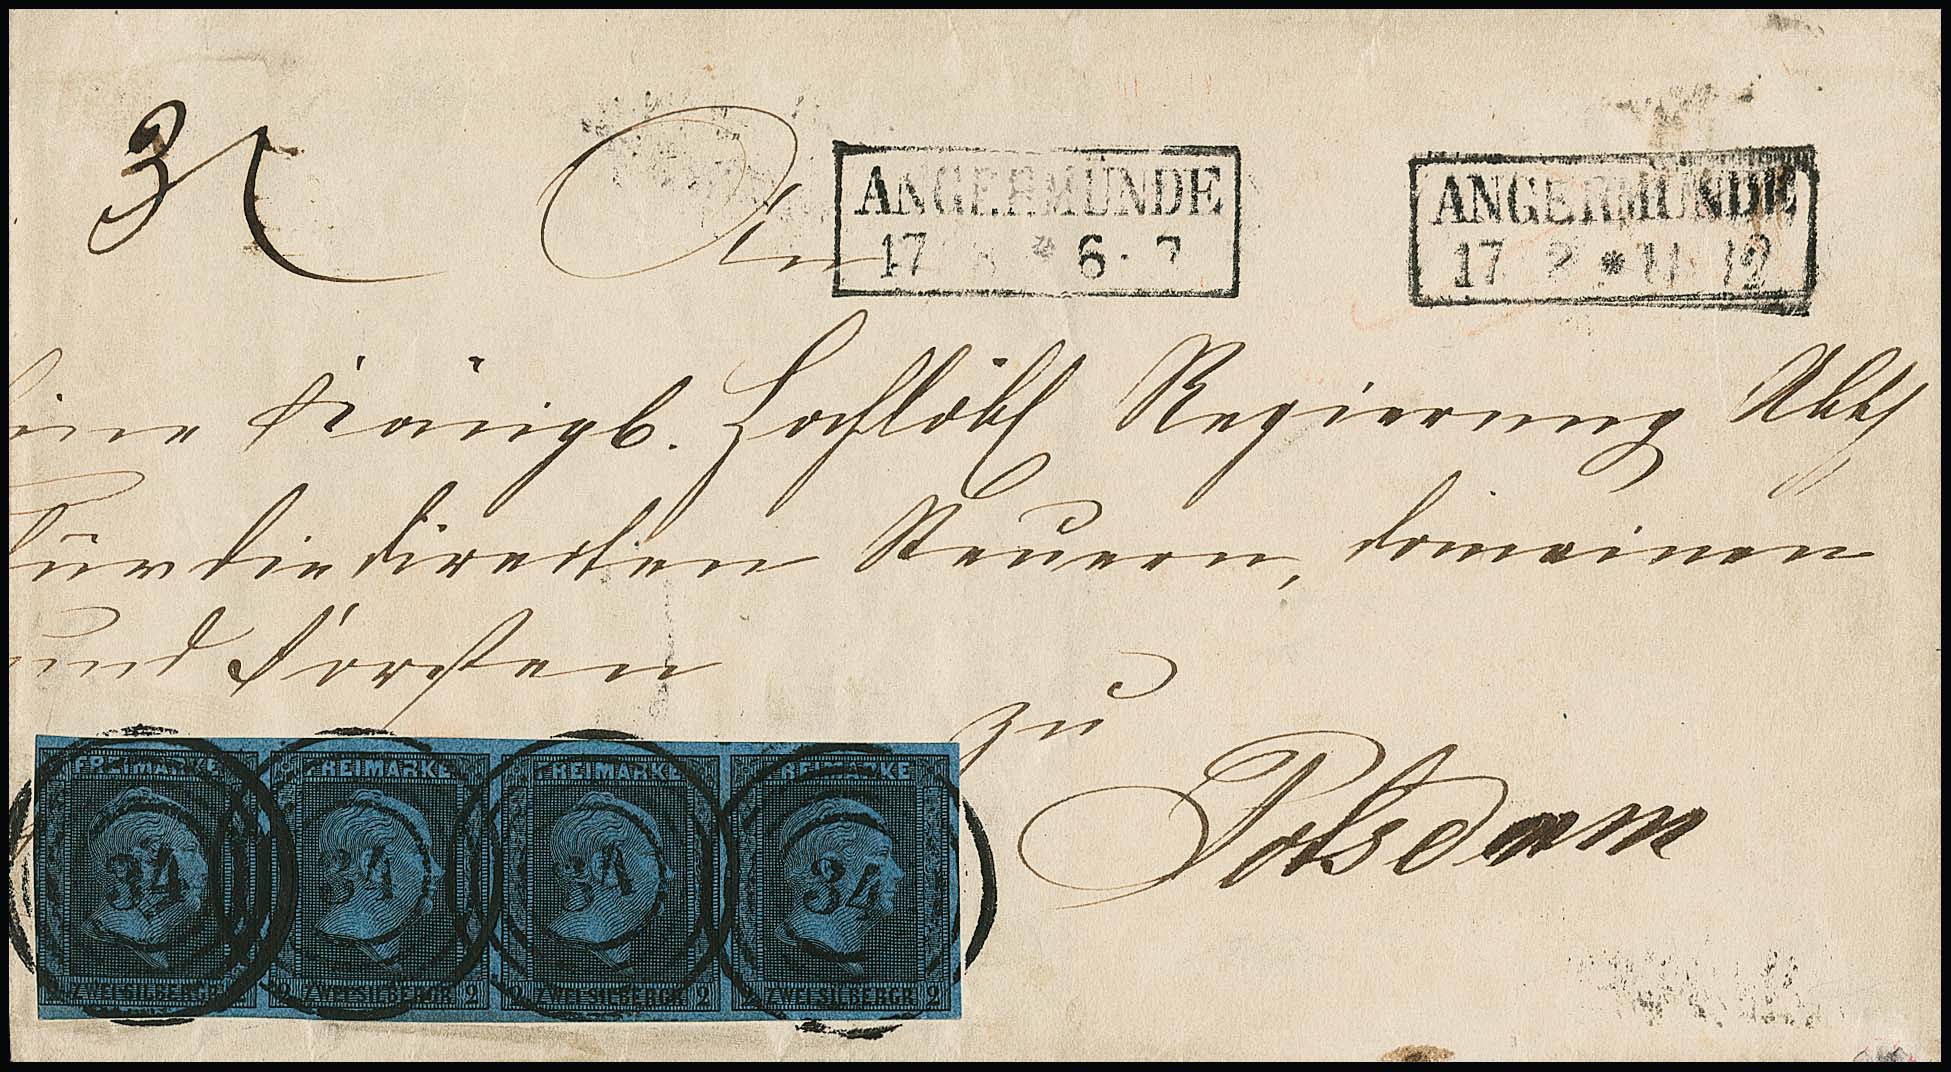 An
ANGERMÜNDE
17 8 * 6·7
ANGERMÜNDE
17 8 * 11·12
eine Königl. Hochlöbl Regierung Abth
für die directen Steuern, Domainen
und Forsten
zu
Potsdam
FREIMARKE FREIMARKE FREIMARKE FREIMARKE
34 34 34 34
2 ZWEI SILBERGR 2 ZWEI SILBERGR 2 2 ZWEI SILBERGR 2 2 ZWEI SILBERGR 2